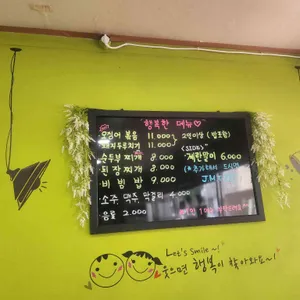 행복한 메뉴♡
오징어 볶음 11,000
제육두루치기 11,000
2인이상 (밥포함)
순두부 찌개 8,000
된장찌개 8,000
비빔밥 9,000
(SIDE)
계란말이 6,000
소주 맥주 막걸리 4,000
음료 2,000
Let's Smile~!
웃으면 행복이 찾아와요~!